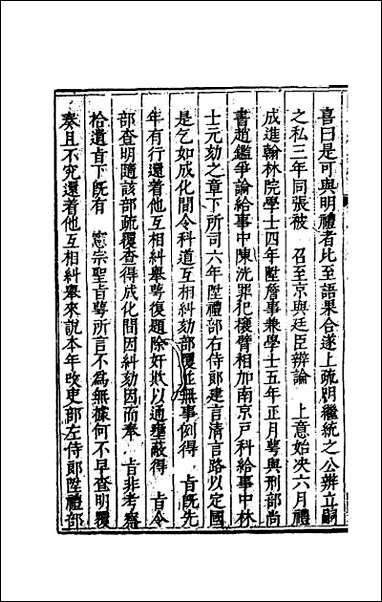 喜曰是可與明禮者比至語果合遂上疏明繼統之公辨立嗣
之私三年同張被　召至京與廷臣辨論　上意始决六月禮
成進翰林院學士四年陞詹事兼學士五年正月萼與刑部尚
書趙鑑爭論給事中陳洗罪犯攘臂相加南京戶科給事中林
士元劾之章下所司六年陞禮部右侍郎建言清言路以定國
是乞如成化間令科道互相糾劾部覆並無事例得　旨既先
年有行還着他互相糾舉萼復題除奸欺以通壅蔽得　旨令
部查明隨該部疏覆查得成化間因糾劾因而奉　旨非考察
拾遺旨下既有　憲宗聖旨萼所言不為無據何不早查明覆
奏且不究還着他互相糾舉來說本年改吏部左侍郎陞禮部